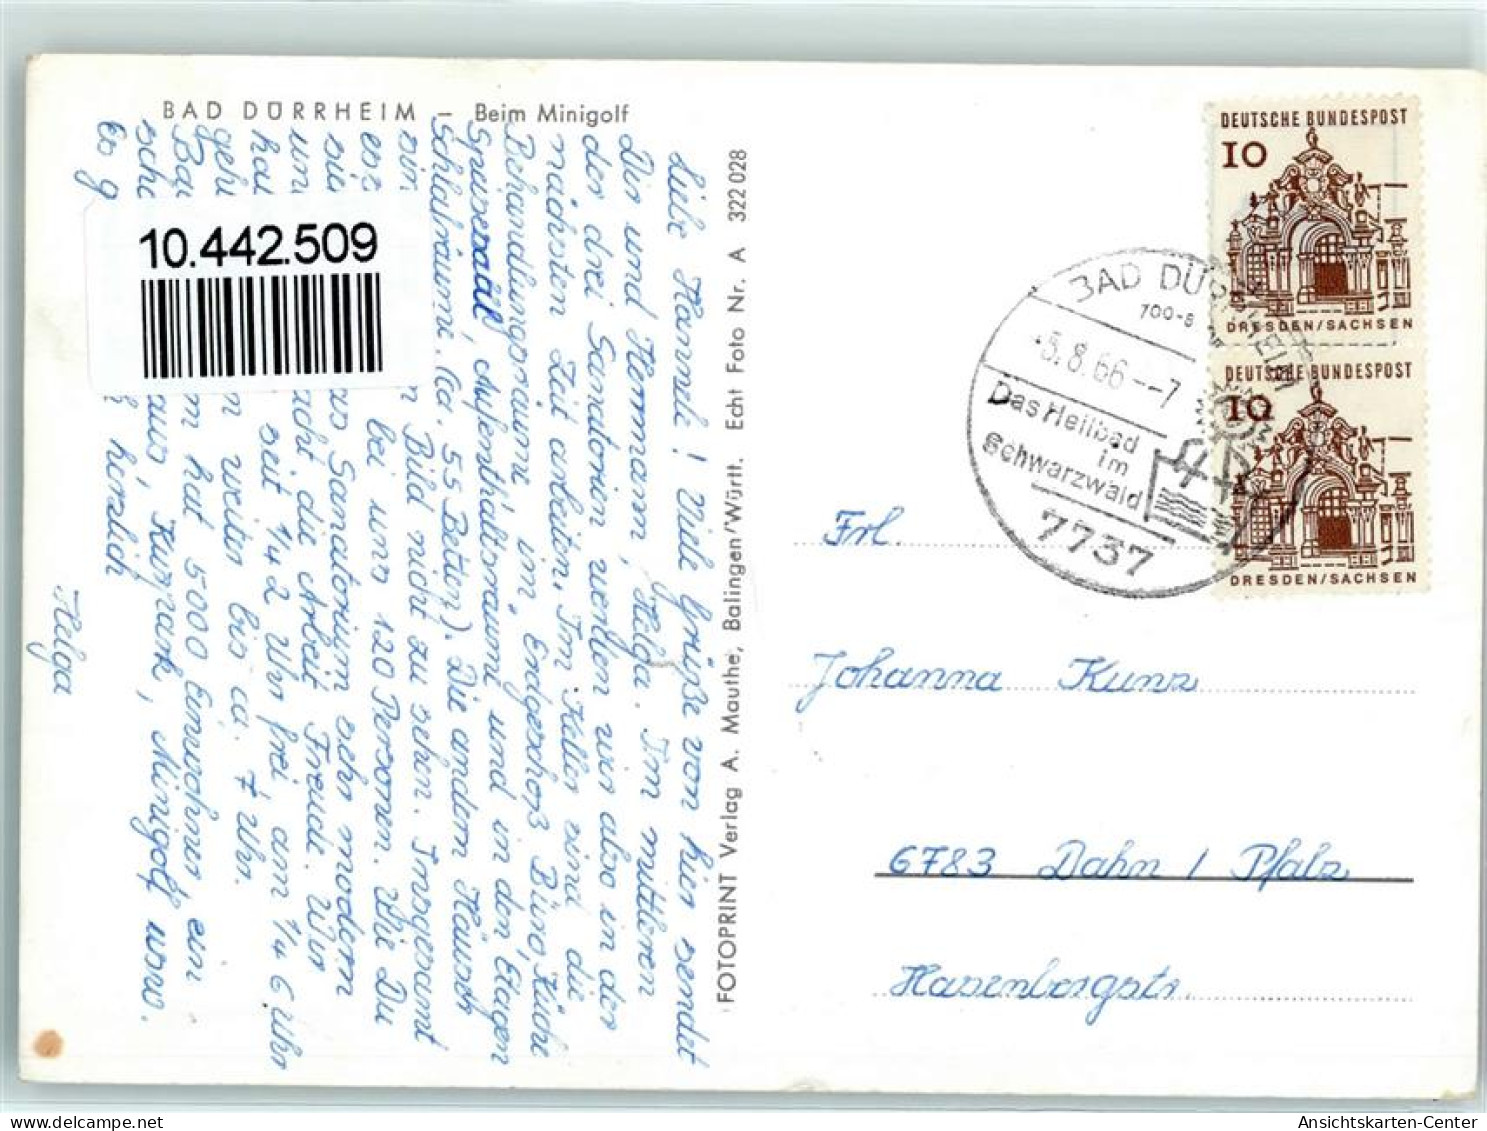 BAD DÜRRHEIM – Beim Minigolf
Liebe Hannel! Viele Grüße von hier sendet
Dir und Hermann, Helga. Im mittleren
der drei Sanatorien werden wir also in der
nächsten Zeit arbeiten. Im Keller sind die
Behandlungsräume, im Erdgeschoß Büro, Küche
Speisesaal, Aufenthaltsraum und in den Etagen
Schlafräume. (ca. 55 Betten). Die andern Häuser
sin Bild nicht zu sehen. Insgesamt
es bei uns 120 Personen. Wie Du
sie das Sanatorium sehr modern
un acht die Arbeit Freude. Wir
ha seit 1/4 2 Uhr frei, am 1/4 6 Uhr
geh n weiter bis ca. 7 Uhr.
Ba m hat 5000 Einwohner ein
sche aus, Kurpark, Minigolf usw.
Es g herzlich
Helga
10.442.509
FOTOPRINT Verlag A. Mauthe, Balingen/Württ. Echt Foto Nr. A 322 028
DEUTSCHE BUNDESPOST
10
DRESDEN/SACHSEN
DEUTSCHE BUNDESPOST
10
DRESDEN/SACHSEN
BAD DÜRRHEIM
700-8
-5.8.66--7
Das Heilbad
im
Schwarzwald
7737
Frl.
Johanna Kunz
6783 Dahn / Pfalz
Hasenbergstr.
Ansichtskarten-Center